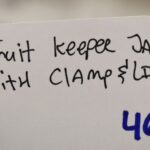 ruit Keeper JA
ith Clamp & Li
46